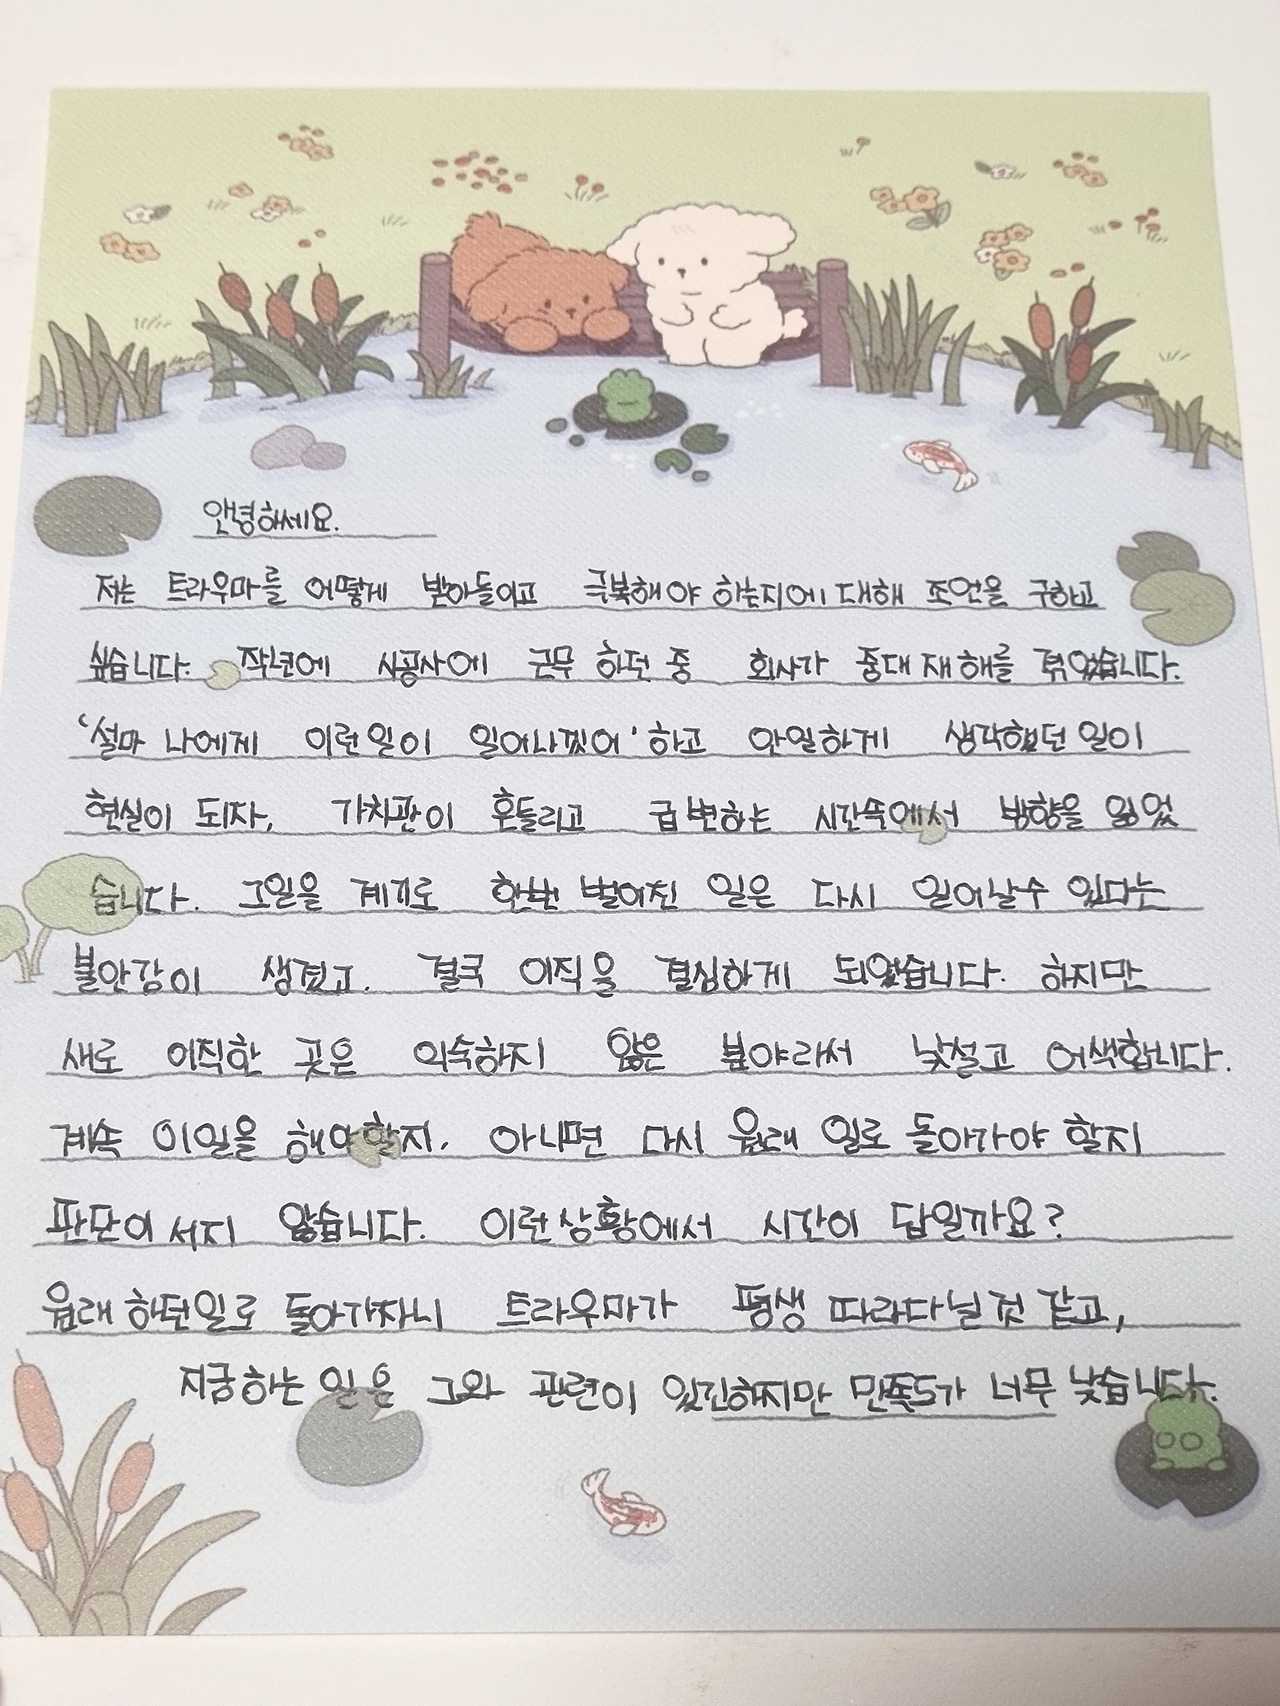 안녕하세요.
저는 트라우마를 어떻게 받아들이고 극복해야 하는지에 대해 조언을 구하고
싶습니다. 작년에 시공사에 근무 하던 중 회사가 중대 재해를 겪었습니다.
'설마 나에게 이런일이 일어나겠어' 하고 안일하게 생각했던 일이
현실이 되자, 가치관이 흔들리고 급변하는 시간속에서 방향을 잃었
습니다. 그일을 계기로 한번 벌어진 일은 다시 일어날수 있다는
불안감이 생겼고, 결국 이직을 결심하게 되었습니다. 하지만
새로 이직한 곳은 익숙하지 않은 분야라서 낯설고 어색합니다.
계속 이일을 해야할지, 아니면 다시 원래 일로 돌아가야 할지
판단이 서지 않습니다. 이런상황에서 시간이 답일까요?
원래 하던일로 돌아가자니 트라우마가 평생 따라다닐것 같고,
지금하는 일은 그와 관련이 있긴하지만 만족도가 너무 낮습니다.